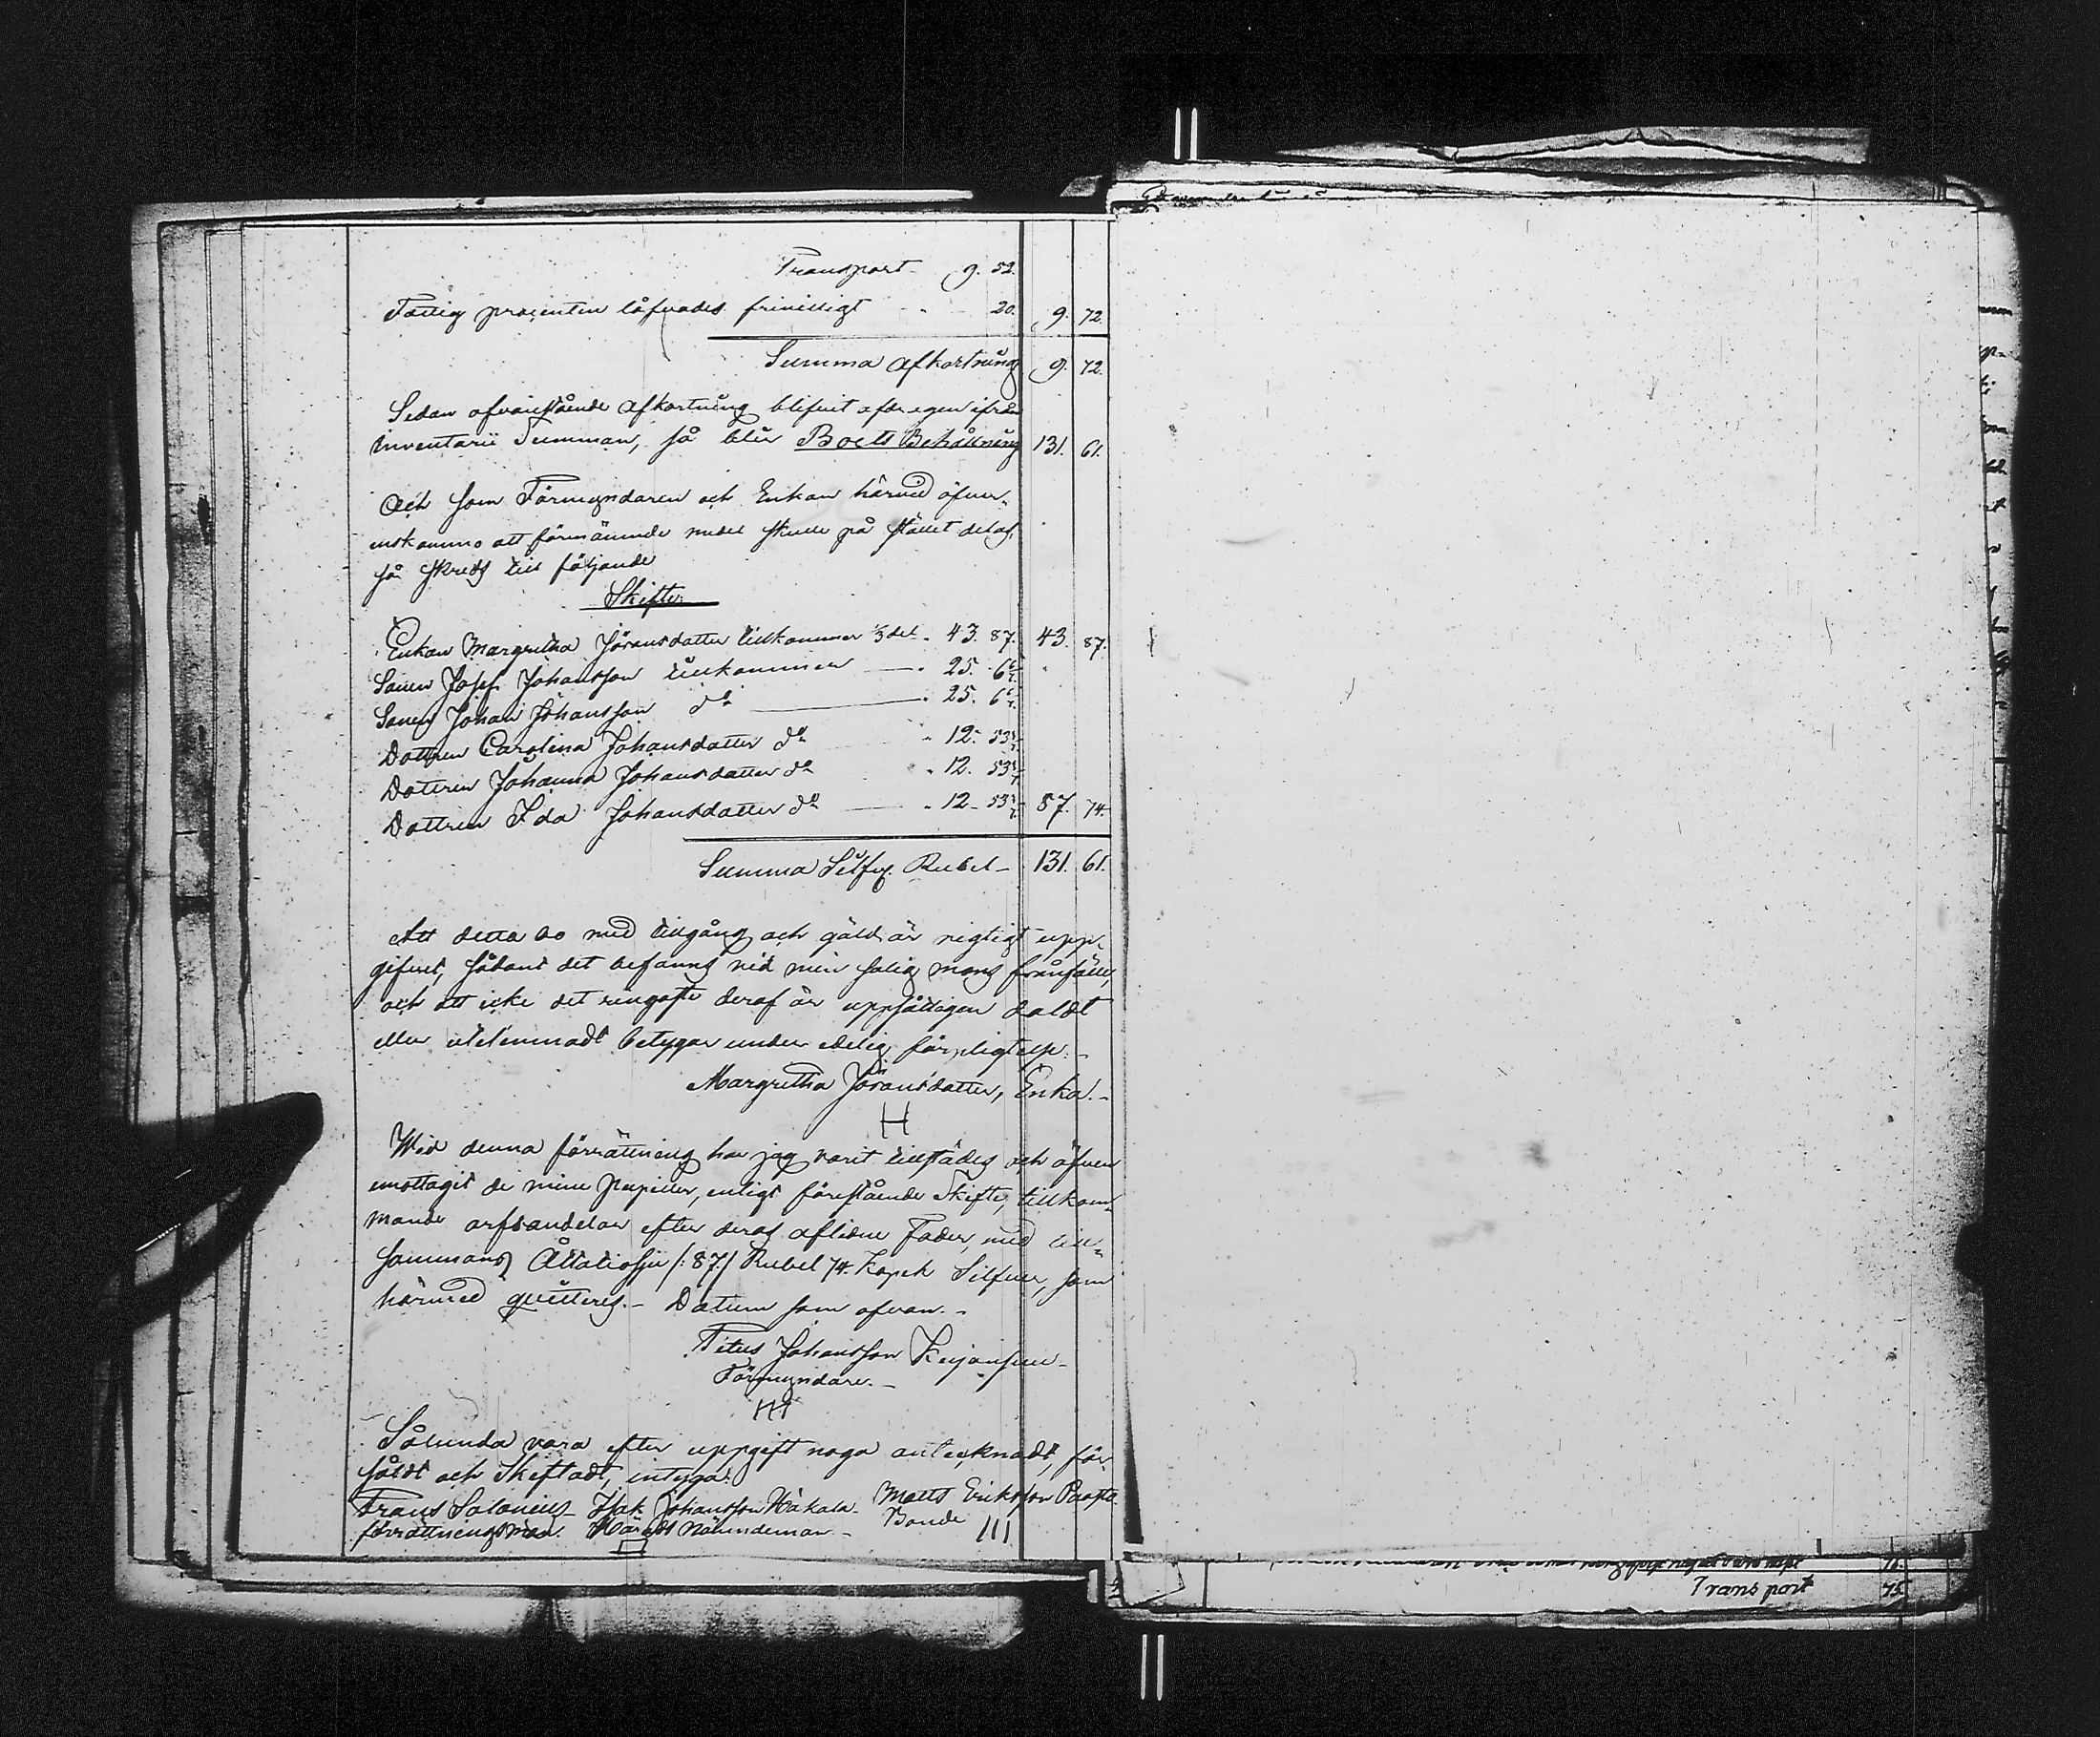 Transport 9. 52.
Fattig procenten låfvades frivilligt 20. 9. 72.
Summa Afkortning 9. 72.
Sedan ofvanstående afkortning blifvit afdragen ifrån
Inventarii Summan, så blir Boets Behållning 131. 61.
Och som Förmyndaren och Enkan härvid öfver-
enskommo att förenämnde medel skulle på stället delas,
så skreds till följande
Skifte:
Enkan Margretha Jöransdatter tillkommer 1/3 del. 43. 87. 43. 87.
Sonen Josef Johansson tillkommer 25.
Sonen Johan Johansson do 25.
Dottren Carolina Johansdatter do 12. 53
Dottren Johanna Johansdatter do 12. 53
Dottren Ida Johansdatter do 12. 53 87. 74.
Summa Silfver Rubel 131. 61.
Att detta bo med tillgång och gäld är rigtigt upp-
gifvet, sådant det befanns vid min salig mans frånfälle,
och att icke det ringaste deraf är uppsåtligen doldt
eller utelemnadt betygar under edelig förpligtelse.
Margretha Jöransdatter, Enka.
H
Wid denna förrättning har jag varit tillstädes och äfven
emottagit de mine Pupiller, enligt förestående Skifte, tillkom-
mande arfsandelar efter deras aflidne Fader, med till-
sammans Åttatiosju /:87:/ Rubel 74. Kopek Silfver, som
härmed qvitteras. Datum som ofvan.
Titus Johansson
Förmyndare.
Sålunda vara efter uppgift noga antecknadt, för-
såldt och Skiftadt, intyga:
Frans Salonius Isak Johansson Hakala Matts Eriksson
förrättningsman. Härads Nämndeman Bonde
III
Transport 75